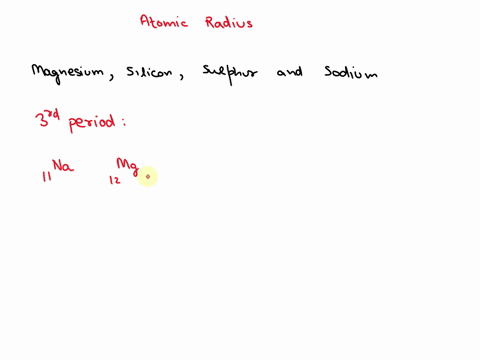 Atomic Radius
Magnesium, Silicon, Sulphur and Sodium
3rd period:
11Na 12Mg